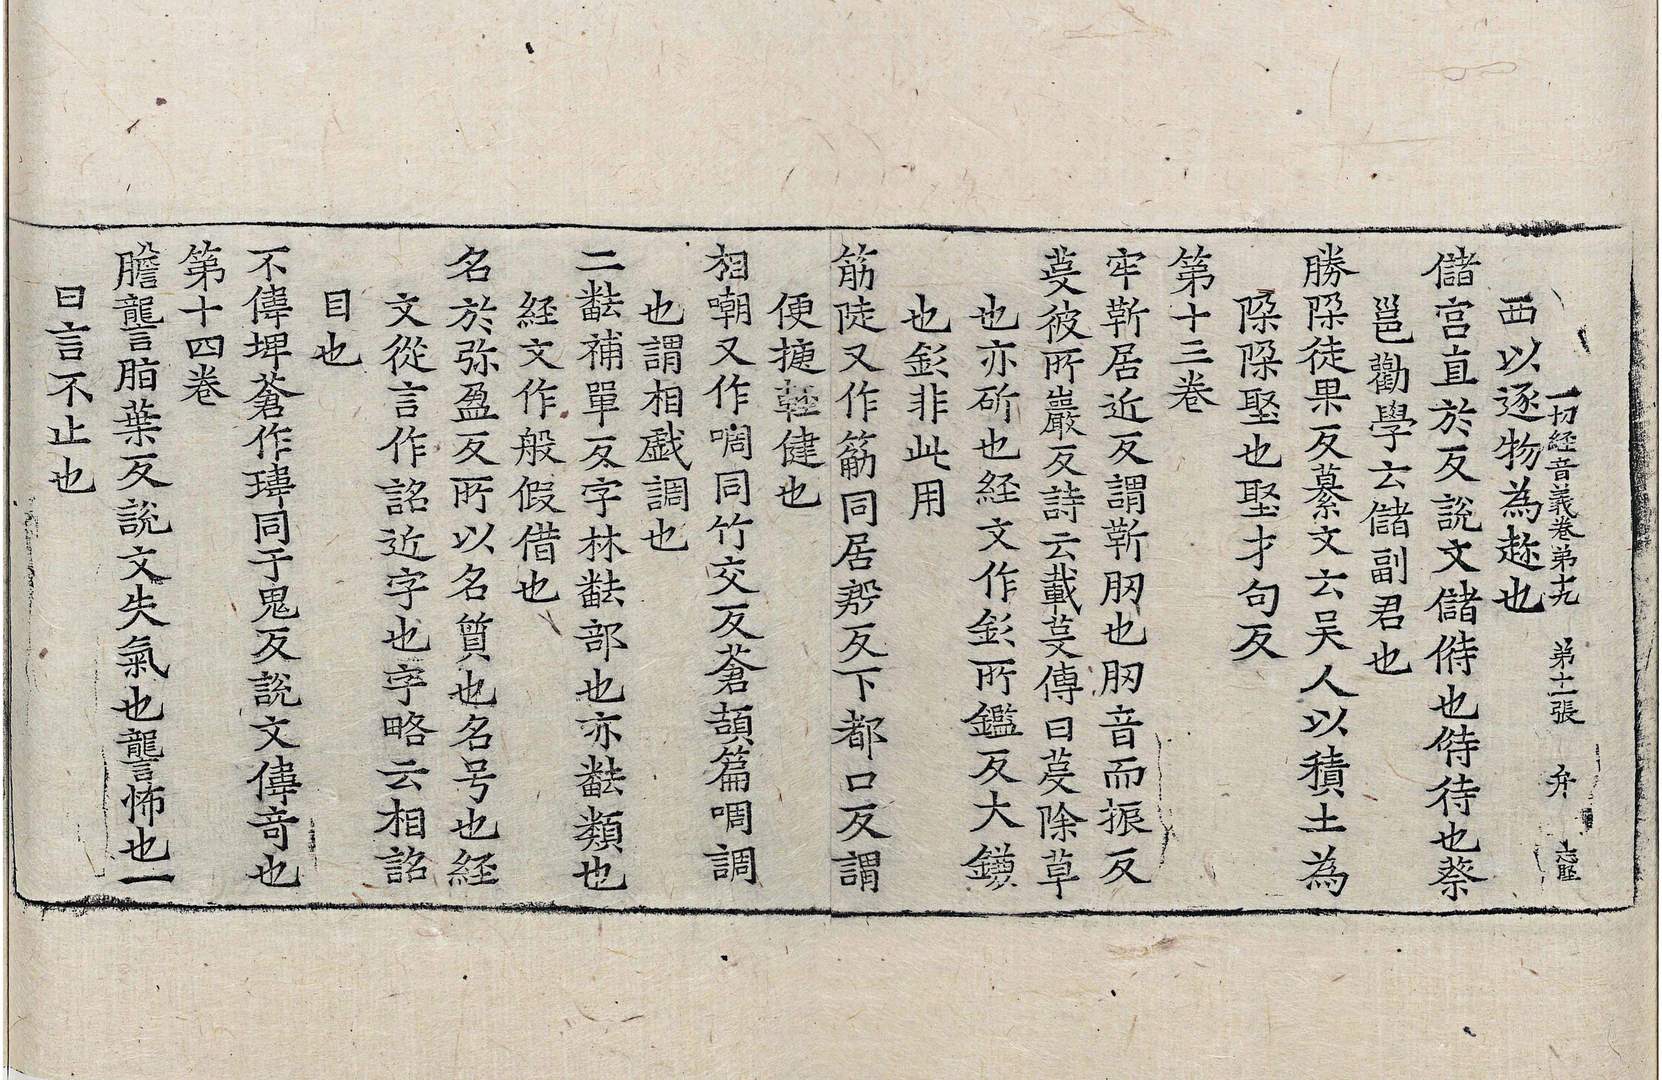 一切經音義卷第十九 第十二張 弁
西以逐物為趂也
儲宮直於反說文儲偫也偫待也蔡
邕勸學云儲副君也
勝隉徒果反纂文云吴人以積土為
隉隉聚也聚才句反
第十三卷
牢靳居近反謂靳肕也肕音而振反
芟彼所巖反詩云載芟傳曰芟除草
也亦斫也経文作釤所鑑反大鎌
也釤非此用
筋陡又作觔同居郄反下都口反謂
便㨗輕健也
相嘲又作啁同竹交反蒼頡篇啁調
也謂相戱調也
二㽃補單反字林㽃部也亦㽃類也
経文作般假借也
名於弥盈反所以名質也名号也経
文從言作詺近字也字略云相詺
目也
不傀埤蒼作瑰同于鬼反說文傀奇也
第十四卷
膽讋脂葉反說文失氣也讋怖也一
曰言不止也